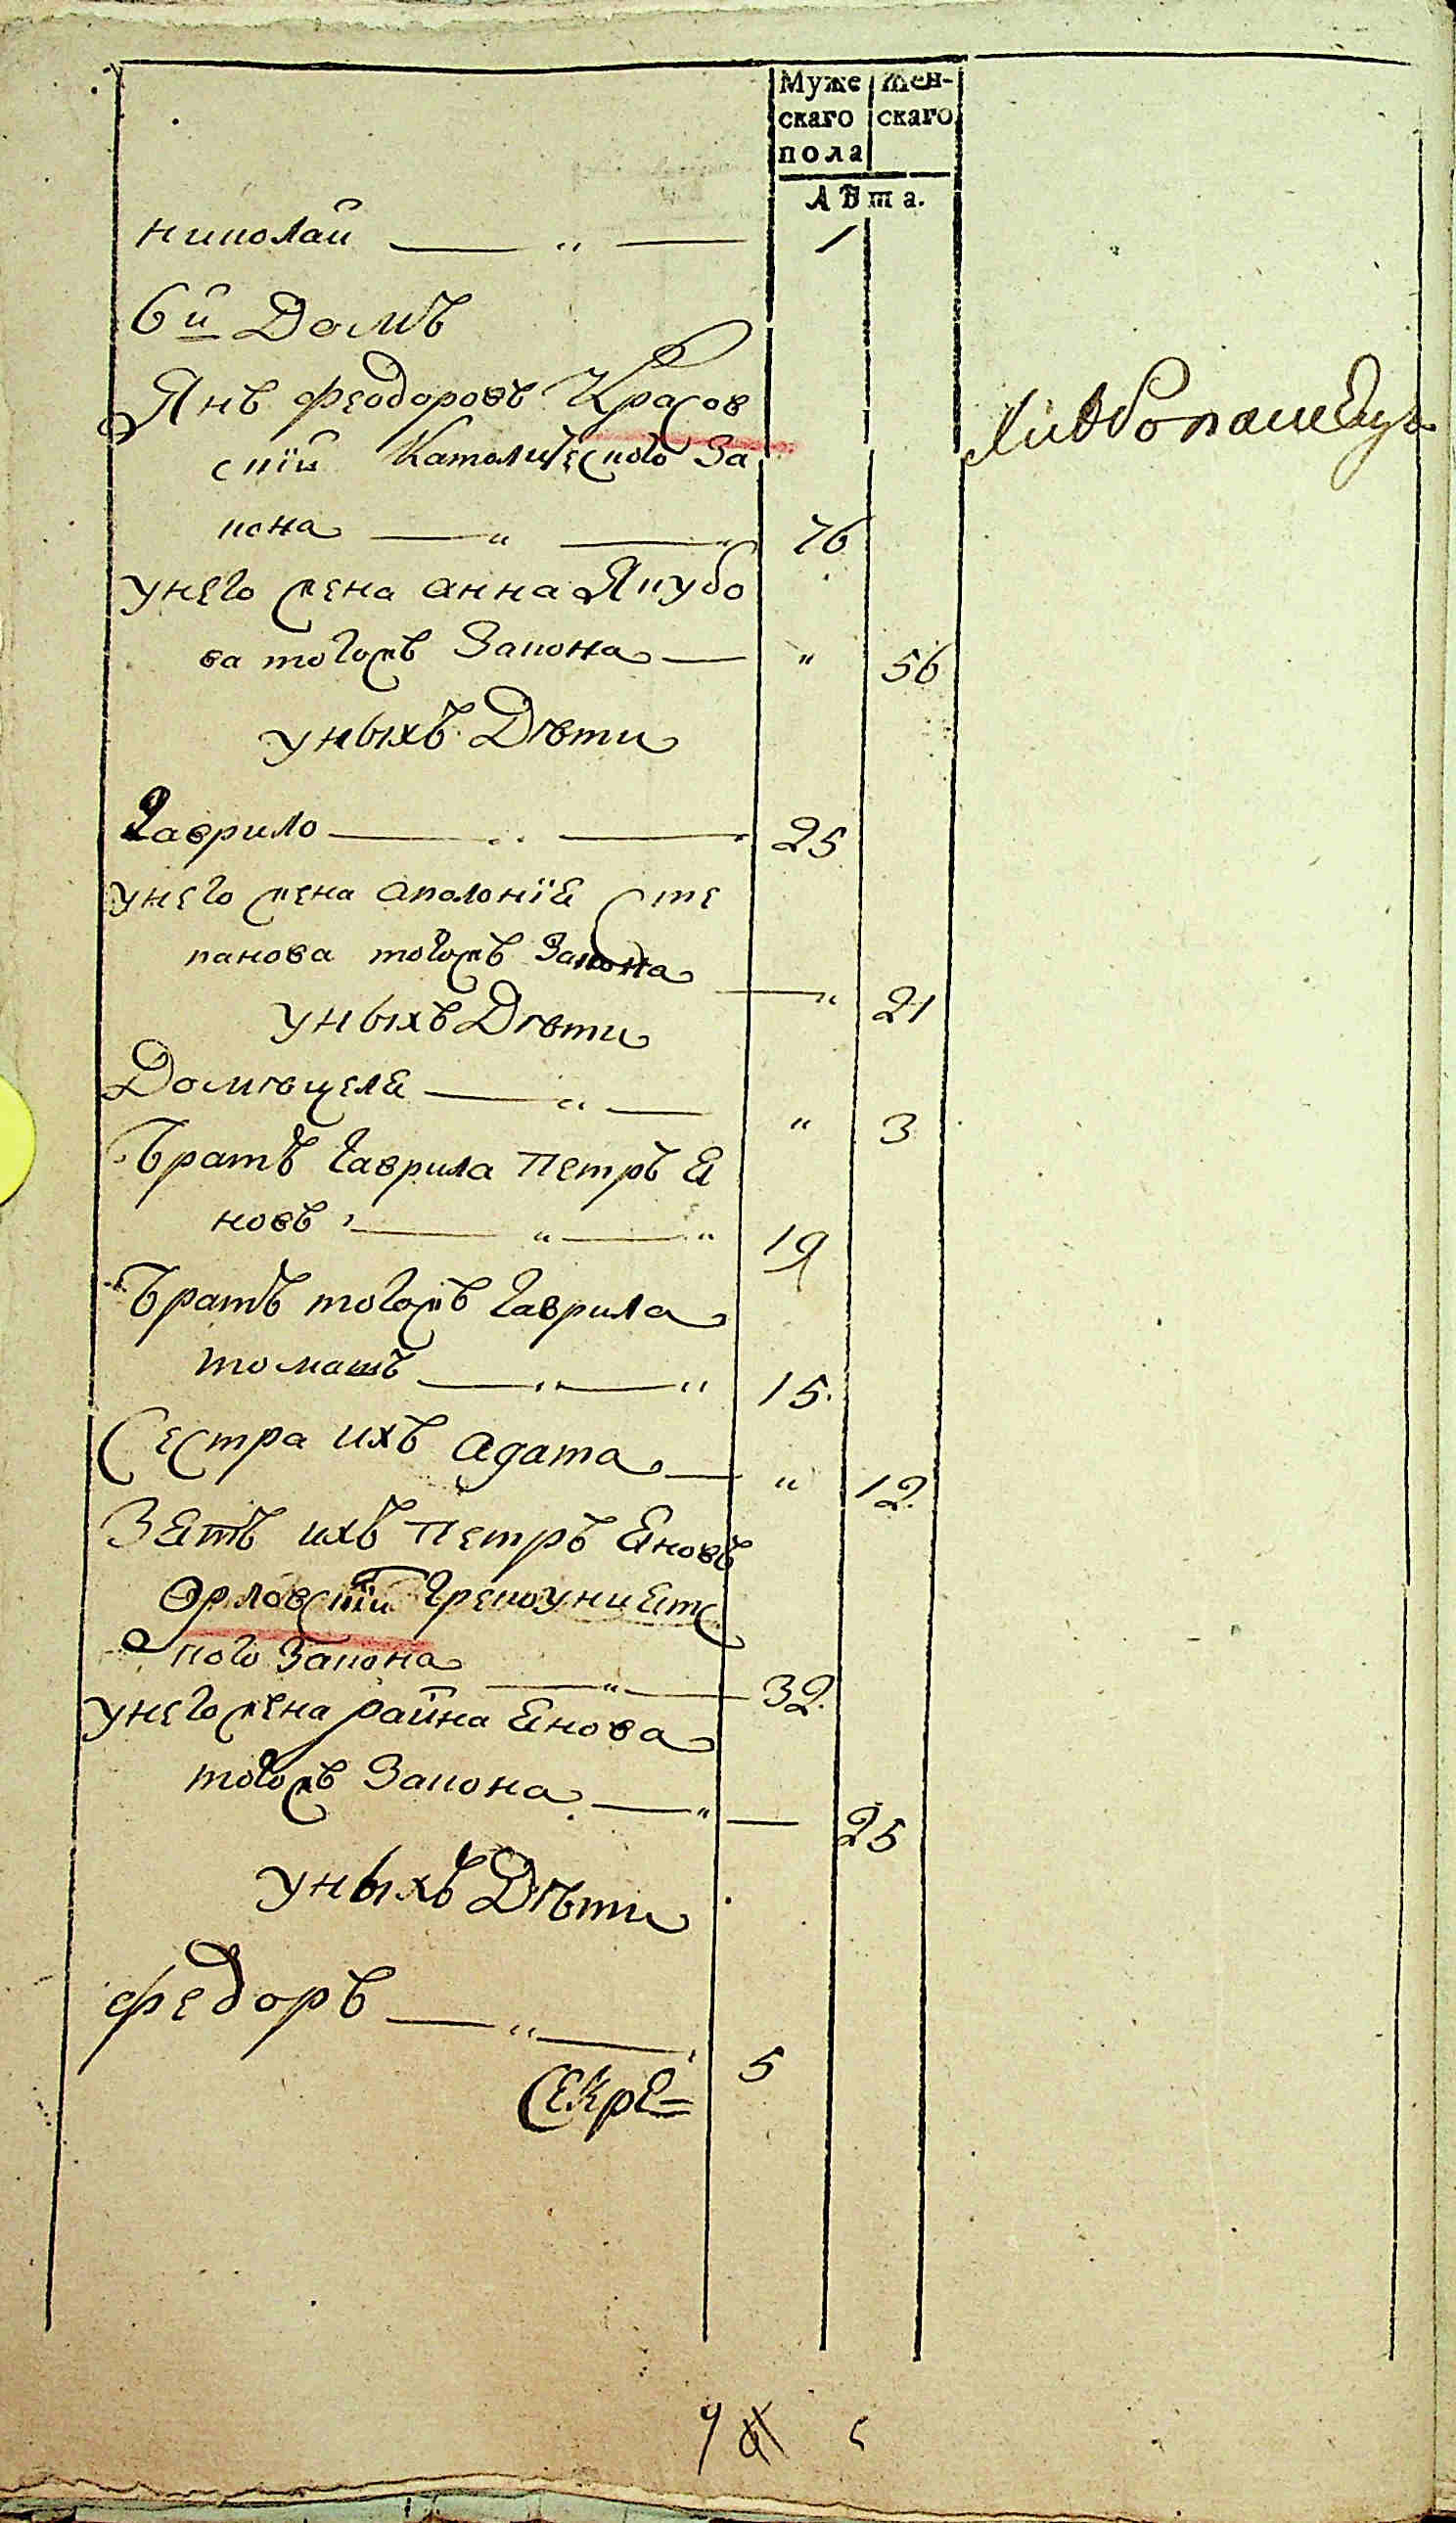 Муже
скаго
пола
Жен-
скаго
Лѣта.
Николай — " — 1
6й Домъ
Янъ Феодоровъ Красов
скїй Католического За
кона — " — " 76
унего жена анна Якубо
ва тогожъ Закона — " 56
уныхъ Дѣти
Гаврило — 25
унего жена аполонїя Сте
панова тогожъ Закона — " 21
уныхъ Дѣти
Домѣцеля — " — " 3
Братъ Гаврила Петръ Я
новъ — " — " 19
Братъ тогожъ Гаврила
томашъ — " — " 15.
Сестра ихъ агата — " 12.
Зятъ ихъ Петръ Яновъ
Орловскїй Грекоуниятс
кого Закона — " — 32.
унего жена райна Янова
тогожъ Закона — " — 25
уныхъ Дѣти
Федоръ — " — 5
Секре=
9 6